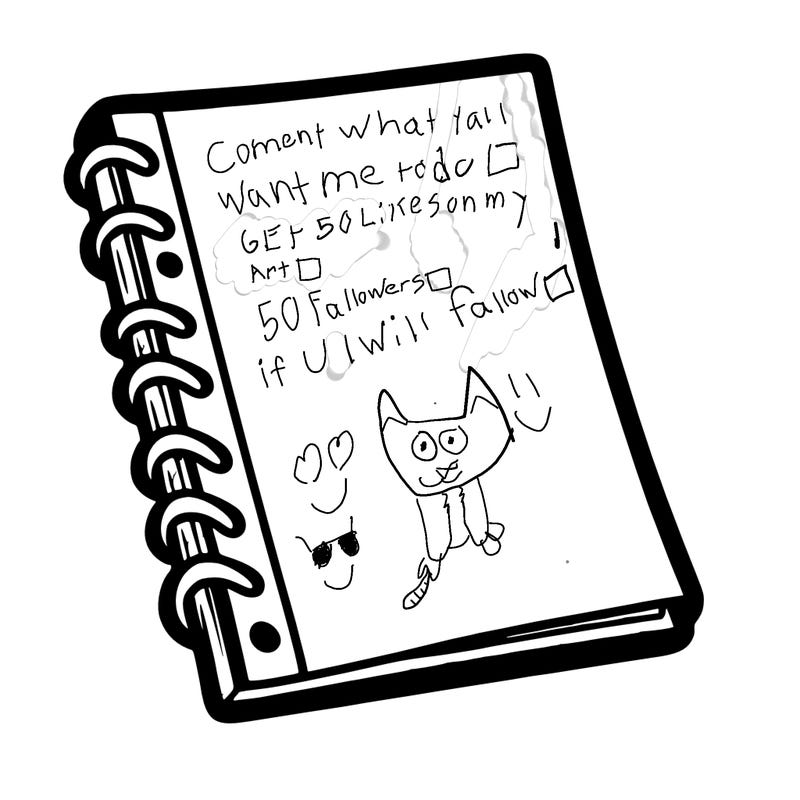 Coment what yall
want me to do
GEt 50 Likes on my
Art
50 Fallowers
if U I Will fallow